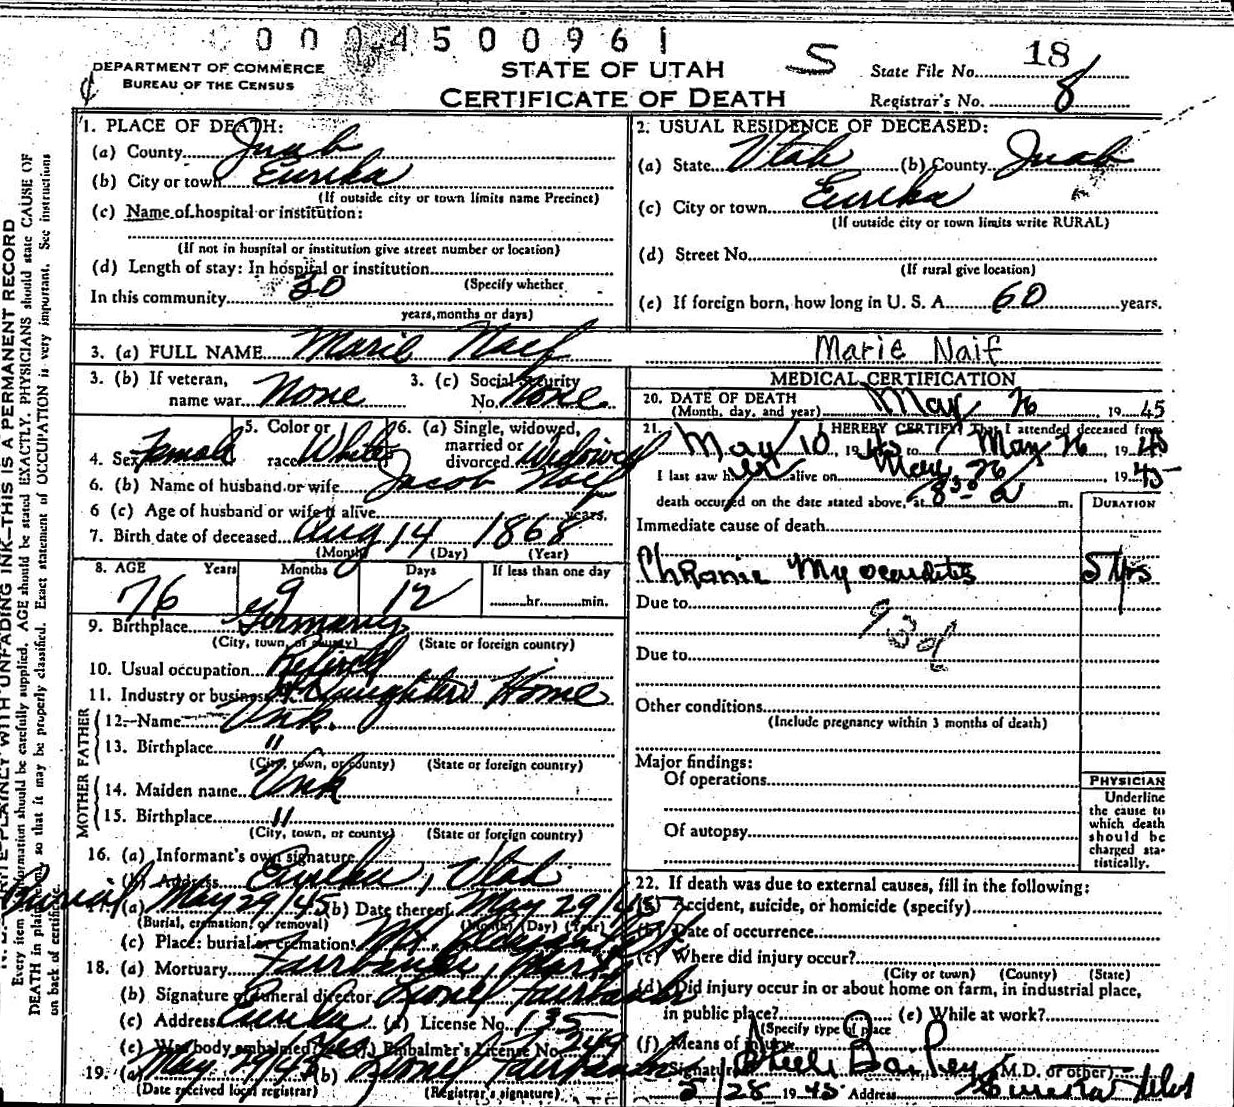 0004500961
S
18
DEPARTMENT OF COMMERCE
BUREAU OF THE CENSUS
STATE OF UTAH
CERTIFICATE OF DEATH
State File No.
Registrar's No. 8
1. PLACE OF DEATH:
(a) County Juab
(b) City or town Eureka
(If outside city or town limits name Precinct)
(c) Name of hospital or institution:
(If not in hospital or institution give street number or location)
(d) Length of stay: In hospital or institution
(Specify whether
In this community 30
years, months or days)
2. USUAL RESIDENCE OF DECEASED:
(a) State Utah (b) County Juab
(c) City or town Eureka
(If outside city or town limits write RURAL)
(d) Street No.
(If rural give location)
(e) If foreign born, how long in U. S. A. 60 years.
3. (a) FULL NAME Marie Naif
Marie Naif
3. (b) If veteran, name war None
3. (c) Social Security No. None
4. Sex Female
5. Color or race White
6. (a) Single, widowed, married or divorced Widowed
6. (b) Name of husband or wife Jacob Naif
6 (c) Age of husband or wife if alive years.
7. Birth date of deceased Aug 14 1868
(Month) (Day) (Year)
8. AGE Years Months Days If less than one day
76 9 12 hr. min.
9. Birthplace Germany
(City, town, or county) (State or foreign country)
10. Usual occupation Retired
11. Industry or business At Daughters Home
FATHER
12. Name Unk.
13. Birthplace "
(City, town, or county) (State or foreign country)
MOTHER
14. Maiden name Unk
15. Birthplace "
(City, town, or county) (State or foreign country)
16. (a) Informant's own signature
(b) Address Eureka, Utah
Burial (a) May 29/45 (b) Date thereof May 29/45
(Burial, cremation, or removal) (Month) (Day) (Year)
(c) Place: burial or cremation Mt
18. (a) Mortuary Fairbanks
(b) Signature of funeral director Lionel Fairbanks
(c) Address Eureka (d) License No. 135
(e) Was body embalmed Yes (f) Embalmer's License No. 249
19. (a) May 29/45 (b) Lionel Fairbanks
(Date received local registrar) (Registrar's signature)
MEDICAL CERTIFICATION
20. DATE OF DEATH
(Month, day, and year) May 26 1945
21. I HEREBY CERTIFY, That I attended deceased from
May 10, 1945 to May 26 1945
I last saw her alive on May 26 1945
death occurred on the date stated above, at 8 30 a m.
DURATION
Immediate cause of death
Chronic Myocarditis 5 yrs
Due to
93d
Due to
Other conditions
(Include pregnancy within 3 months of death)
Major findings:
Of operations
Of autopsy
PHYSICIAN
Underline
the cause to
which death
should be
charged sta-
tistically.
22. If death was due to external causes, fill in the following:
(a) Accident, suicide, or homicide (specify)
(b) Date of occurrence
(c) Where did injury occur?
(City or town) (County) (State)
(d) Did injury occur in or about home on farm, in industrial place,
in public place? (e) While at work?
(Specify type of place
(f) Means of injury
Signature Steele Bailey (M.D. or other)
5/28 1945 Address Eureka Utah
WRITE PLAINLY WITH UNFADING INK—THIS IS A PERMANENT RECORD
Every item of information should be carefully supplied. AGE should be stated EXACTLY. PHYSICIANS should state CAUSE OF
DEATH in plain terms so that it may be properly classified. Exact statement of OCCUPATION is very important. See instructions
on back of certificate.